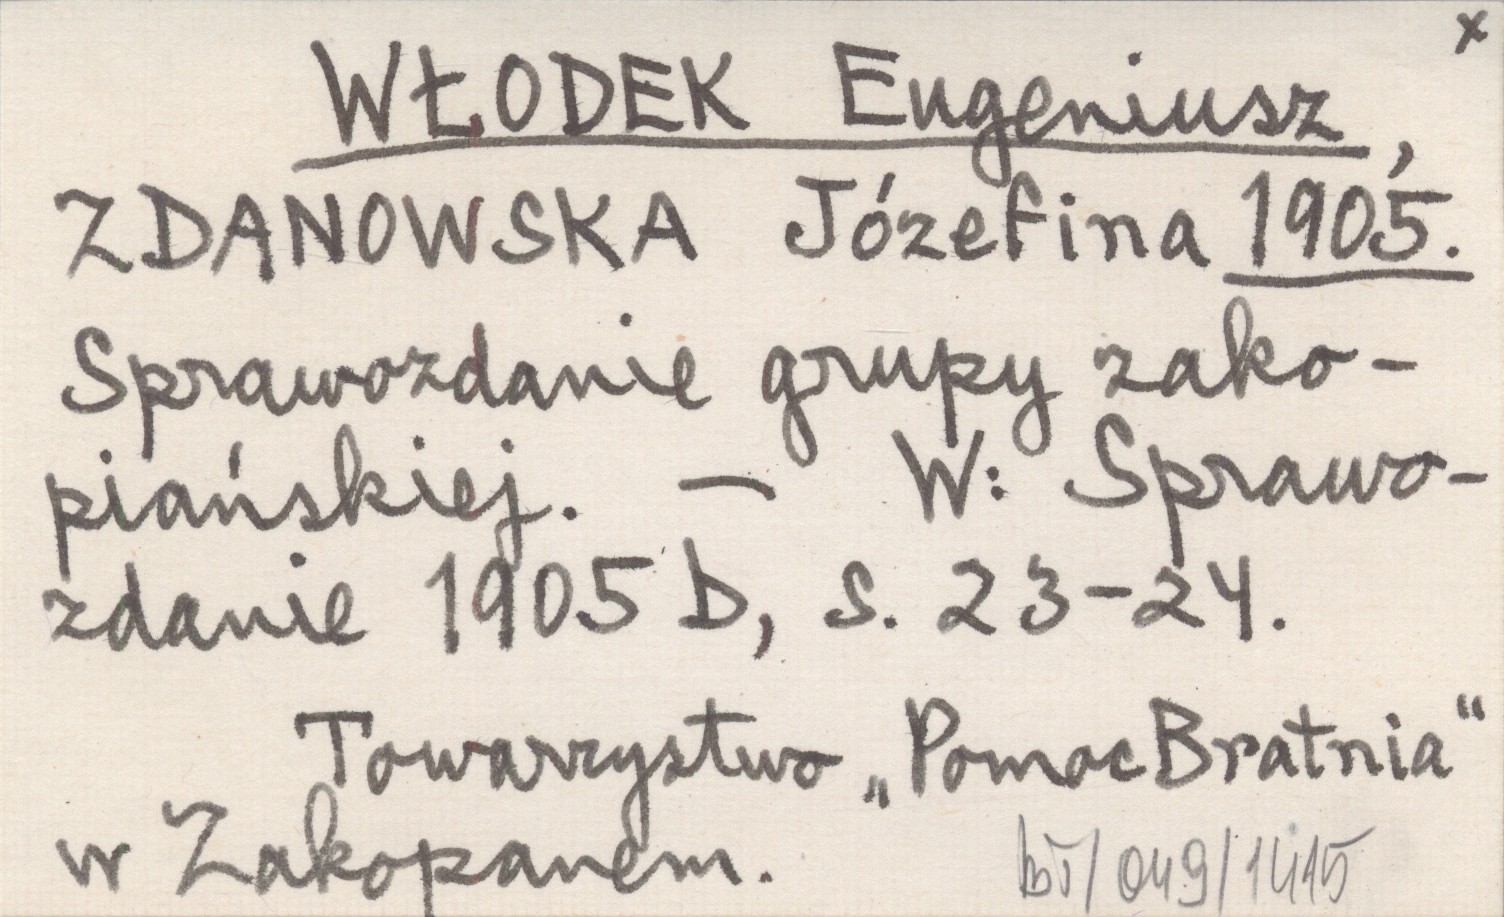 x
WŁODEK Eugeniusz,
ZDANOWSKA Józefina 1905.
Sprawozdanie grupy zako-
piańskiej. — W: Sprawo-
zdanie 1905 b, s. 23-24.
Towarzystwo „Pomoc Bratnia“
w Zakopanem.
/049/1415